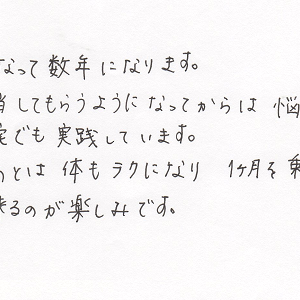 なって数年になります。
してもらうようになってからは 悩
でも 実践しています。
とは 体もラクになり 1ヶ月を
るのが楽しみです。